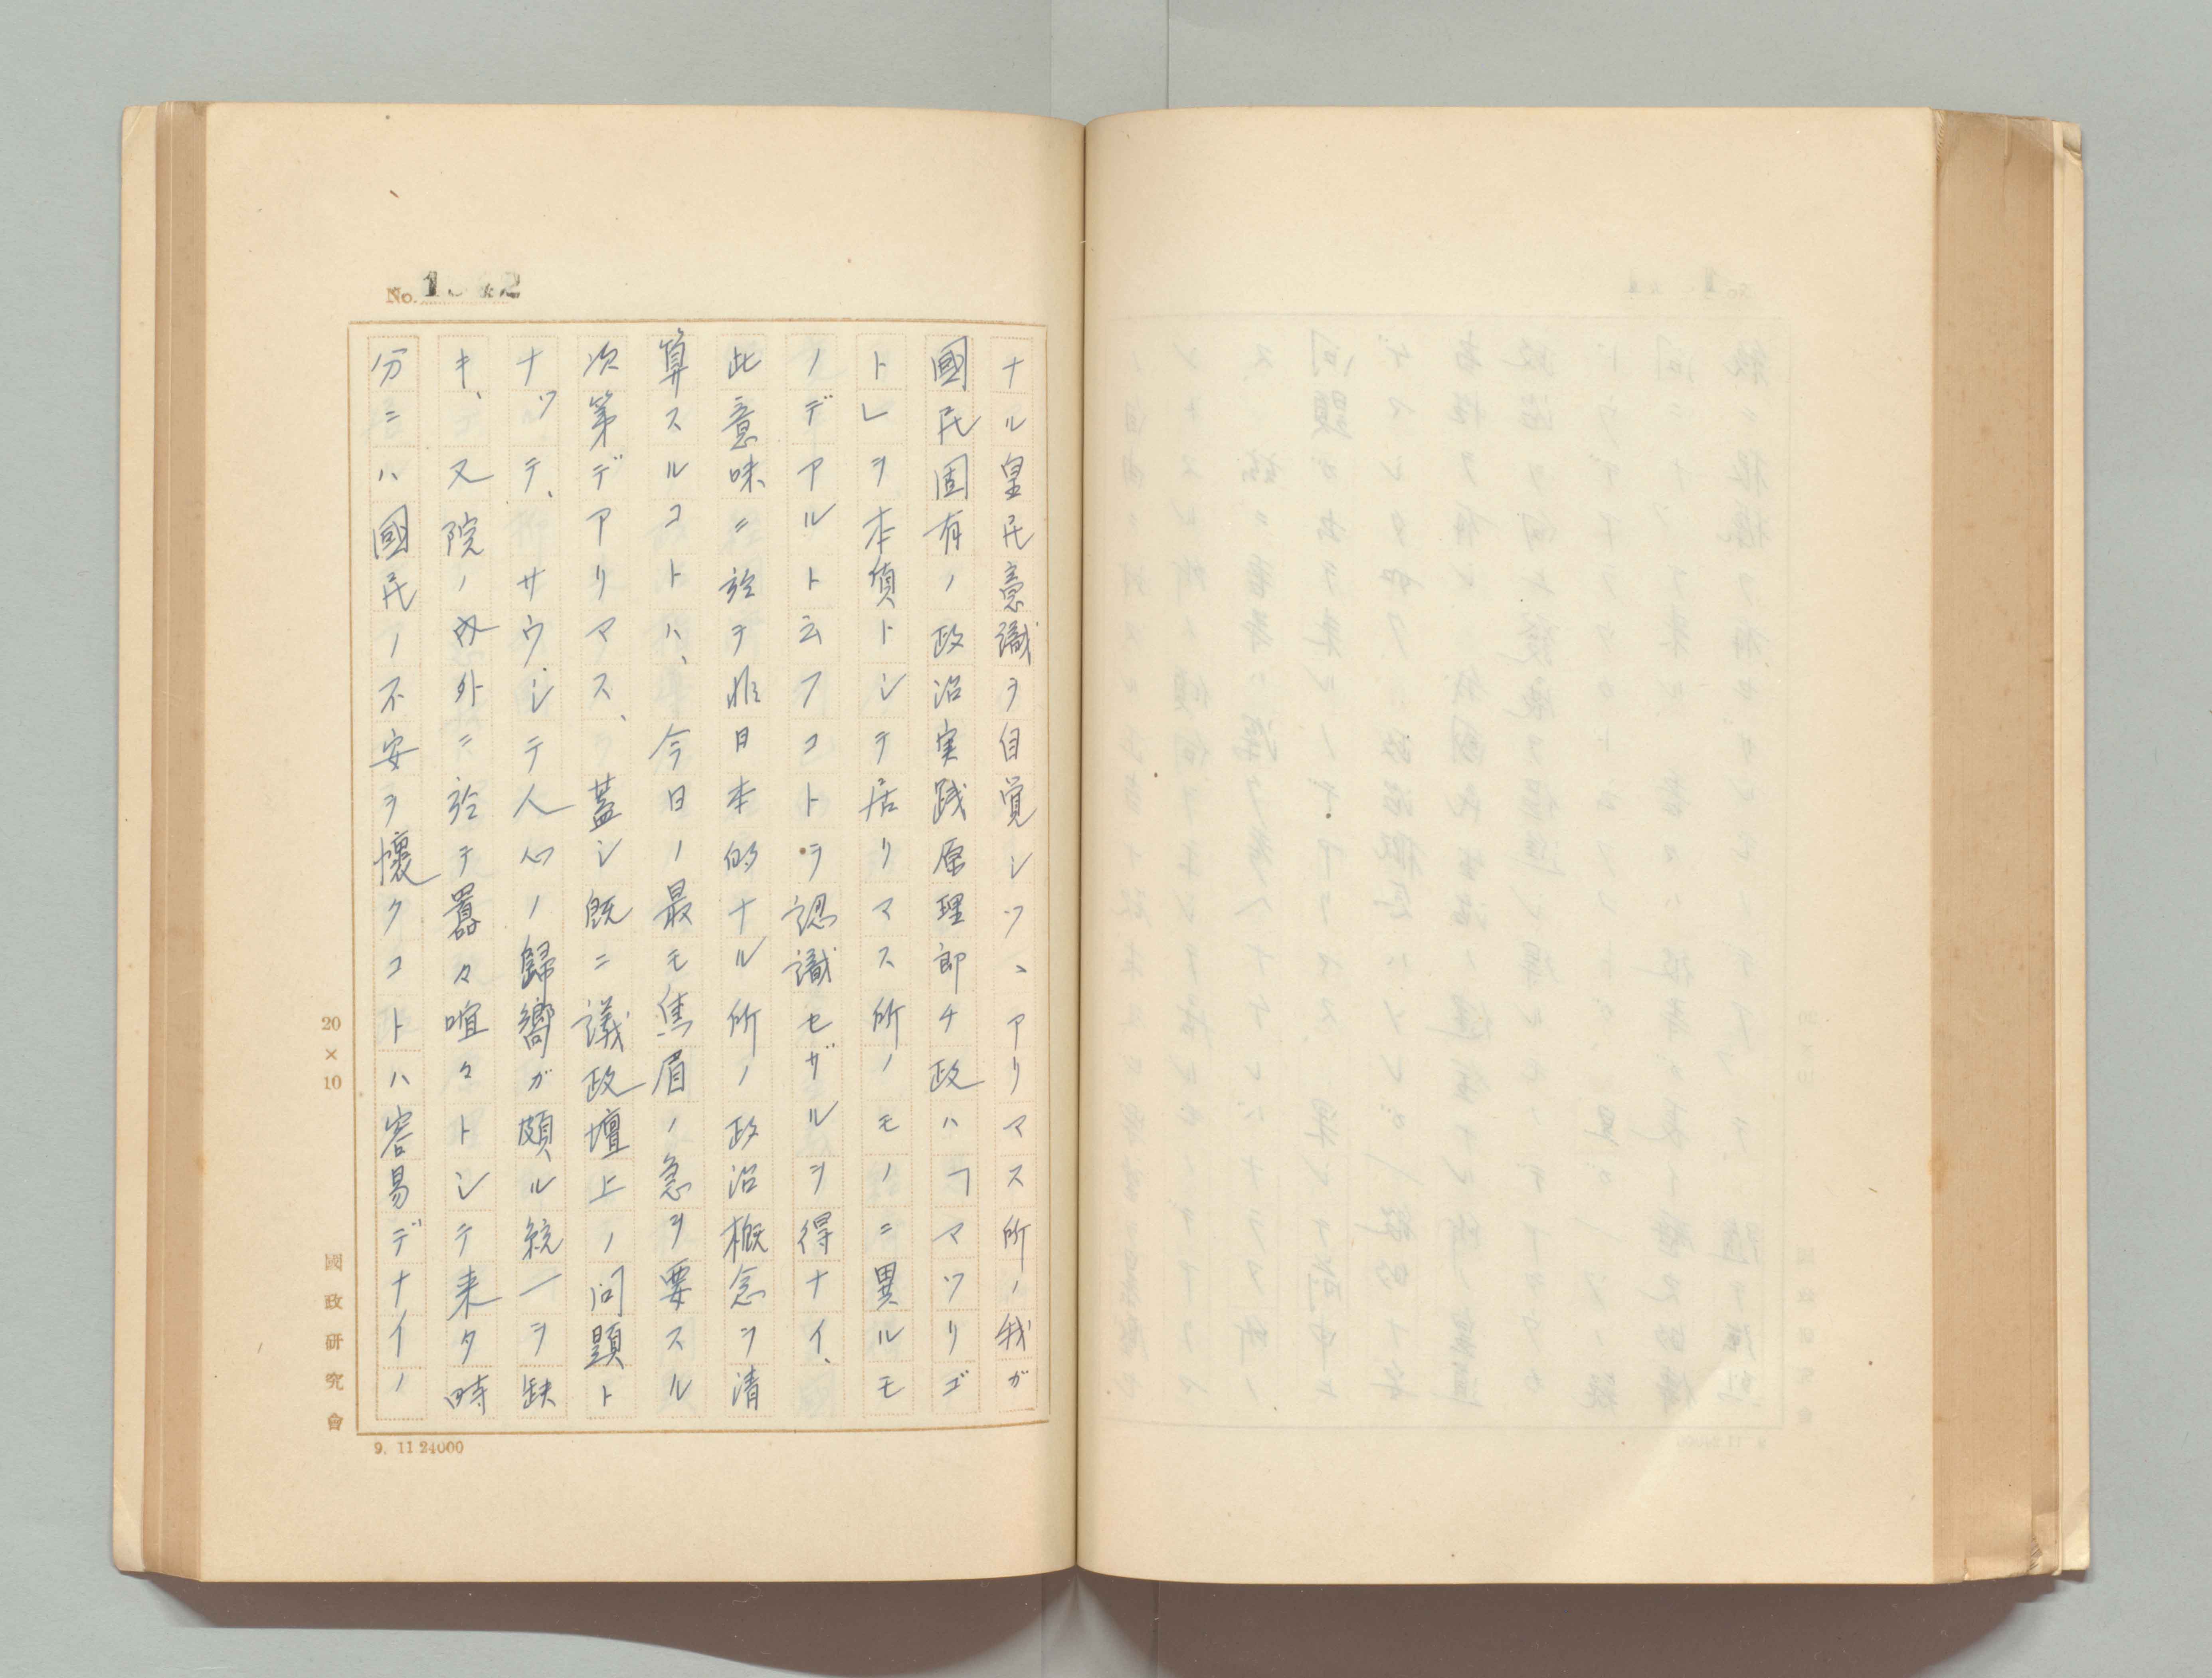 No. 1
ナル皇民意識ヲ自覚シツヽアリマス所ノ我ガ
國民固有ノ政治実践原理即チ政ハ「マツリゴ
ト」ヲ本質トシテ居リマス所ノモノニ異ルモ
ノデアルト云フコトヲ認識セザルヲ得ナイ、
此意味ニ於テ非日本的ナル所ノ政治概念ヲ清
算スルコトハ、今日ノ最モ焦眉ノ急ヲ要スル
次第デアリマス、蓋シ既ニ議政壇上ノ問題ト
ナツテ、サウシテ人心ノ歸嚮ガ頗ル統一ヲ缺
キ、又院ノ内外ニ於テ囂々喧々トシテ来タ時
分ニハ國民ノ不安ヲ懷クコトハ容易デナイノ
20×10
國政研究會
9. 11 24000